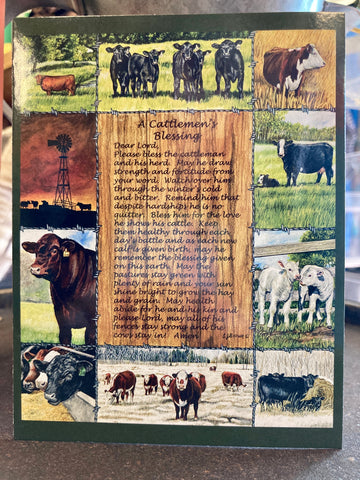 A Cattlemen's
Blessing
Dear Lord,
Please bless the cattleman
and his herd. May he draw
strength and fortitude from
your word. Watch over him
through the winter's cold
and bitter. Remind him that
despite hardships he is no
quitter. Bless him for the love
he shows his cattle. Keep
them healthy through each
day's battle and as each new
calf is given birth, may he
remember the blessing given
on this earth. May the
pastures stay green with
plenty of rain and your sun
shine bright to grow the hay
and grain. May health
abide for he and his kin and
please lord, may all of his
fences stay strong and the
cows stay in! Amen